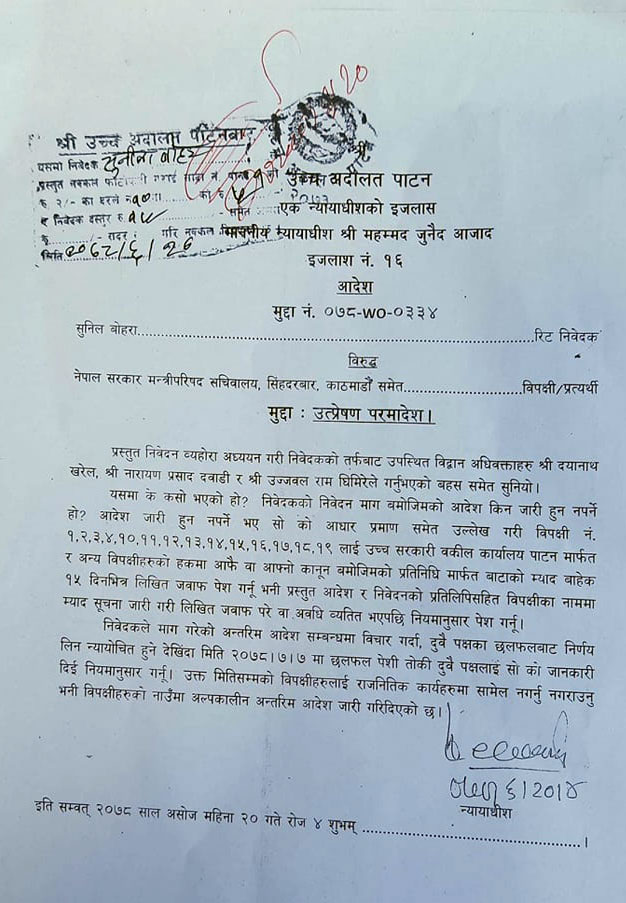 श्री उच्च अदालत पाटनबाट
यसमा निवेदक सुनिल बोहरा
प्रस्तुत नक्कल
रु २/- का दरले
र निवेदक दस्तुर रु.
गरि नक्कल
मिति
उच्च अदालत पाटन
एक न्यायाधीशको इजलास
माननीय न्यायाधीश श्री महम्मद जुनैद आजाद
इजलाश नं. १६
आदेश
मुद्दा नं. ०७८-WO-०३३४
सुनिल बोहरा..........रिट निवेदक
विरुद्ध
नेपाल सरकार मन्त्रीपरिषद सचिवालय, सिंहदरबार, काठमाडौं समेत..........विपक्षी/प्रत्यर्थी
मुद्दा : उत्प्रेषण परमादेश।
प्रस्तुत निवेदन व्यहोरा अध्ययन गरी निवेदकको तर्फबाट उपस्थित विद्वान अधिवक्ताहरु श्री दयानाथ
खरेल, श्री नारायण प्रसाद दवाडी र श्री उज्जवल राम घिमिरेले गर्नुभएको बहस समेत सुनियो।
यसमा के कसो भएको हो? निवेदकको निवेदन माग बमोजिमको आदेश किन जारी हुन नपर्ने
हो? आदेश जारी हुन नपर्ने भए सो को आधार प्रमाण समेत उल्लेख गरी विपक्षी नं.
१,२,३,४,१०,११,१२,१३,१४,१५,१६,१७,१८,१९ लाई उच्च सरकारी वकील कार्यालय पाटन मार्फत
र अन्य विपक्षीहरुको हकमा आफै वा आफ्नो कानून बमोजिमको प्रतिनिधि मार्फत बाटाको म्याद बाहेक
१५ दिनभित्र लिखित जवाफ पेश गर्नू भनी प्रस्तुत आदेश र निवेदनको प्रतिलिपिसहित विपक्षीका नाममा
म्याद सूचना जारी गरी लिखित जवाफ परे वा अवधि व्यतित भएपछि नियमानुसार पेश गर्नू।
निवेदकले माग गरेको अन्तरिम आदेश सम्बन्धमा विचार गर्दा, दुवै पक्षका छलफलबाट निर्णय
लिन न्यायोचित हुने देखिंदा मिति २०७८।७।७ मा छलफल पेशी तोकी दुवै पक्षलाई सो को जानकारी
दिई नियमानुसार गर्नू। उक्त मितिसम्मको विपक्षीहरुलाई राजनितिक कार्यहरुमा सामेल नगर्नु नगराउनु
भनी विपक्षीहरुको नाउँमा अल्पकालीन अन्तरिम आदेश जारी गरिदिएको छ।
न्यायाधीश
इति सम्वत् २०७८ साल असोज महिना २० गते रोज ४ शुभम् ..........।